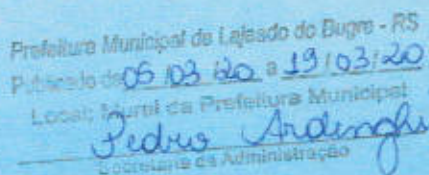 Prefeitura Municipal de Lajeado do Bugre - RS
Publicado de 05/03/20 a 19/03/20
Local: Mural da Prefeitura Municipal
Pedro Ardenghi
Secretaria da Administração